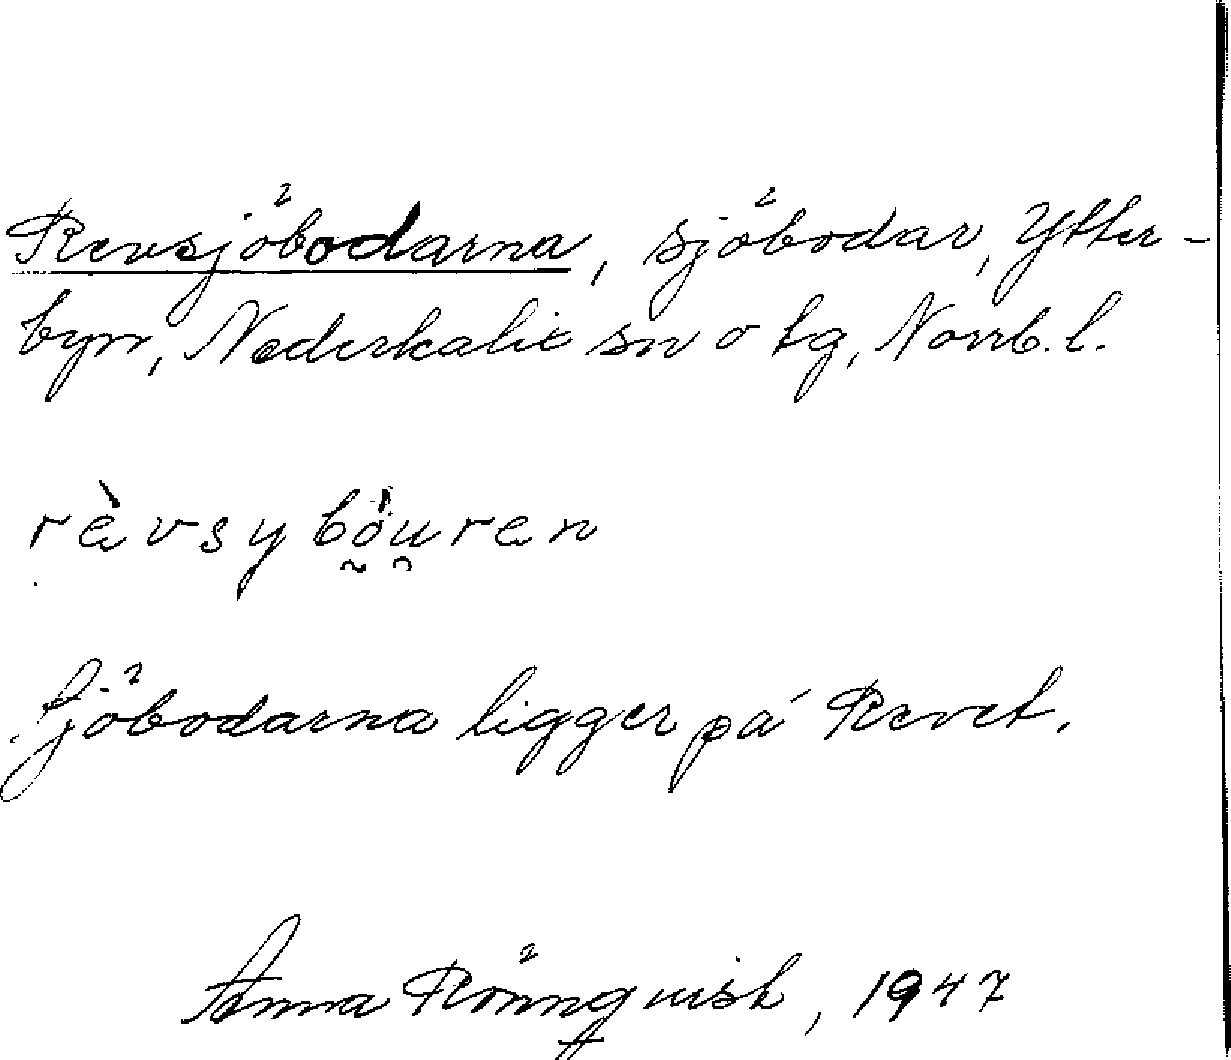 Revsjöbodarna, sjöbodar, Ytter-
byn, Nederkalix sn o tg, Norrb. l.
rèvsybö̀uren
Sjöbodarna ligger på Revet.
Anna Rönnqvist, 1947